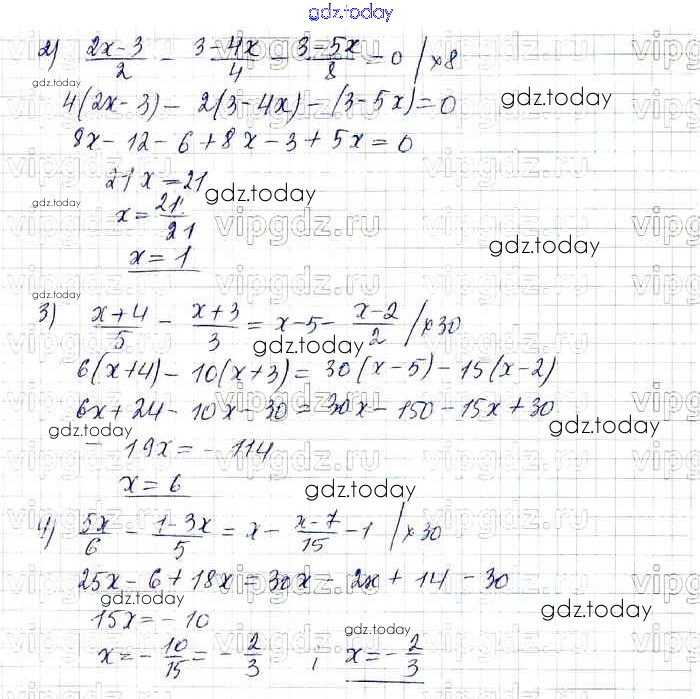 gdz.today
2) (2x-3)/2 - (3-4x)/4 - (3-5x)/8 = 0 /×8
gdz.today
4(2x-3) - 2(3-4x) - (3-5x) = 0
gdz.today
8x - 12 - 6 + 8x - 3 + 5x = 0
21x = 21
gdz.today
x = 21/21
x = 1
gdz.today
gdz.today
3) (x+4)/5 - (x+3)/3 = x - 5 - (x-2)/2 /×30
gdz.today
6(x+4) - 10(x+3) = 30(x-5) - 15(x-2)
6x + 24 - 10x - 30 = 30x - 150 - 15x + 30
gdz.today
gdz.today
- 19x = - 114
x = 6
gdz.today
4) 5x/6 - (1-3x)/5 = x - (x-7)/15 - 1 /×30
25x - 6 + 18x = 30x - 2x + 14 - 30
gdz.today
gdz.today
15x = - 10
gdz.today
x = - 10/15 = - 2/3 , x = - 2/3
vipgdz.ru